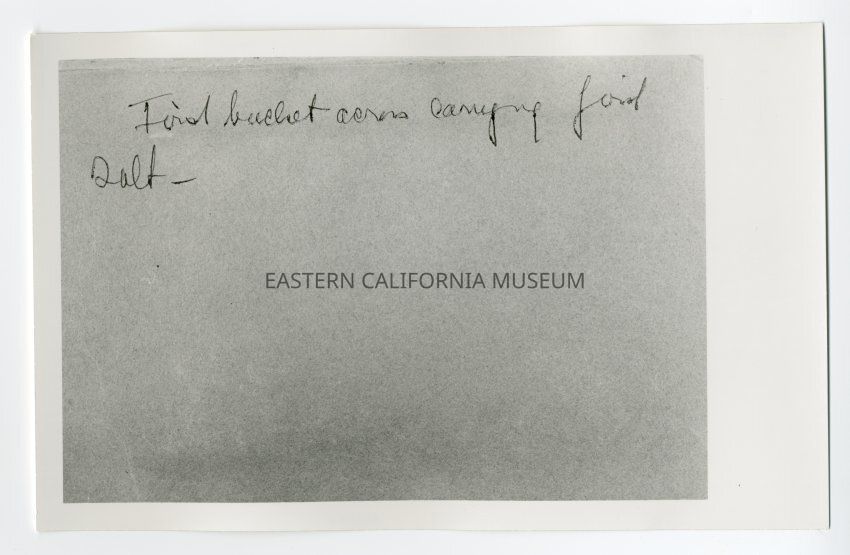 First bucket across carrying first
Salt —
EASTERN CALIFORNIA MUSEUM